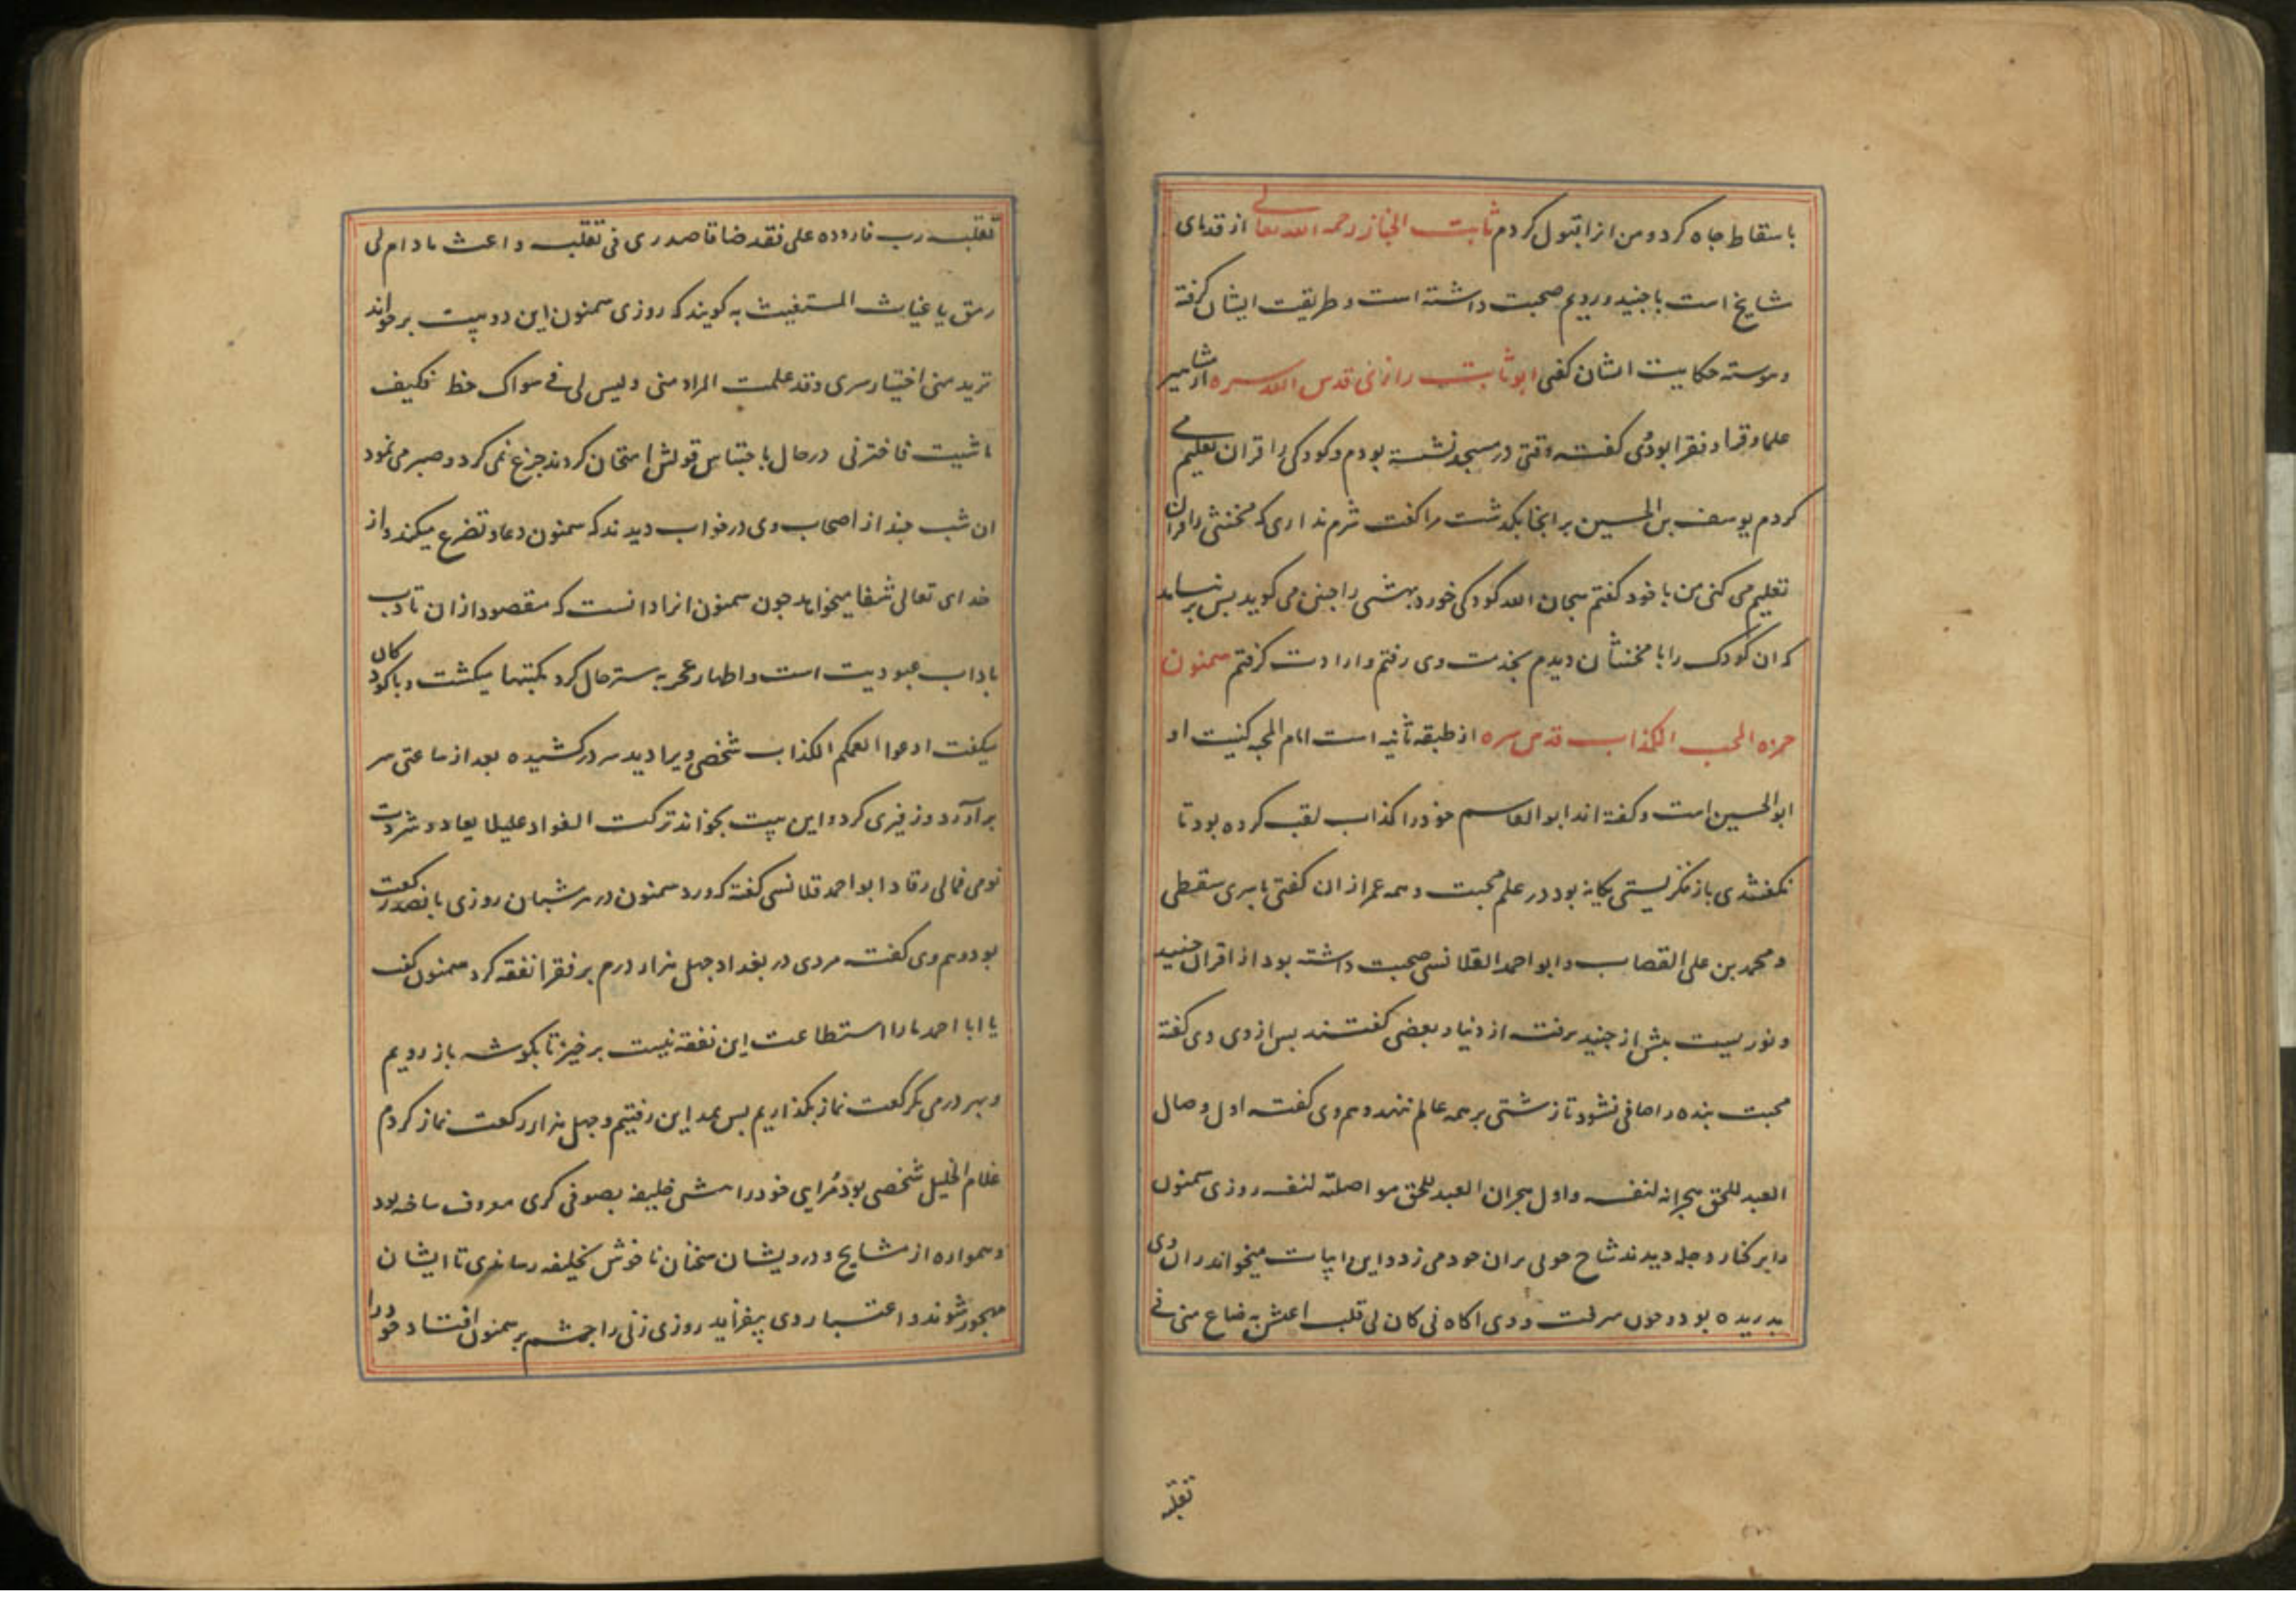 باسقاط جاه کرد و من انرا قبول کردم ثابت الخباز رحمه الله تعالی از قدمای
شایخ است با جنید و رویم صحبت داشته است و طریقت ایشان گرفته
وموسته حکایت ایشان کفتی ابو ثابت رازی قدس الله سره از مشاهیر
علما و قرا و فقرا بودی کفت وقتی در مسجد نشسته بودم و کودکی را قران تعلیم می
کردم یوسف بن الحسین بر انجا بکذشت مرا کفت شرم نداری که مخنثی را قران
تعلیم می کنی من با خود کفتم سبحان الله کودکی خورد بهشتی را چنین می کوید بس برنیامد
که ان کودک را با مخنثان دیدم بخدمت وی رفتم و ارادت گرفتم سمنون
حمزه المحب الکذاب قدس سره از طبقه ثانیه است امام المحبه کنیت او
ابوالحسین است و کفته اند ابوالقاسم خود را کذاب لقب کرده بود تا
نکفتندی باز ننکریستی یکانه بود در علم محبت و همه عمر از ان کفتی با سری سقطی
و محمد بن علی القصاب و ابو احمد القلانسی صحبت داشته بود از اقران جنید
و نوریست پیش از جنید برفت از دنیا و بعضی کفتند بس از وی وی کفته
محبت بنده را صافی نشود تا زشتی بر همه عالم ننهد و هم وی کفت اول وصال
العبد للحق هجرانه لنفسه و اول هجران العبد للحق مواصلته لنفسه روزی سمنون
را بر کنار دجله دیدند شاخ چوبی بران خود می زد و این ابیات میخواند ران وی
بدریده بود و خون میرفت و وی اکاه نی کان لی قلب اعش به ضاع منی فی
تقلبه
تقلبه رب فاردده علی نقد ضاقا صدری فی تقلبه و اعث مادام لی
رمق یا غیاث المستغیث به کویند که روزی سمنون این دو بیت برخواند
ترید منی اختیار سری وقد علمت المراد منی ولیس لی فی سواک حظ فکیف
ماشیت فاخترنی درحال باحتباس قولش امتحان کردند جزع نمی کرد و صبر می نمود
ان شب چند از اصحاب وی در خواب دیدند که سمنون دعا و تضرع میکند و از
خدای تعالی شفا میخواهد چون سمنون انرا دانست که مقصود از ان تادب
باداب عبودیت است و اظهار عجز به ستر حال کرد بمکتبها میکشت و با کودکان
میکفت ادعوا لعمکم الکذاب شخصی ویرا دید سر درکشیده بعد از ساعتی سر
برآورد و زفیری کرد و این بیت بخواند ترکت الفواد علیلا یعاد و شردت
نومی فمالی رقاد ابو احمد قلانسی کفته که ورد سمنون در هر شبان روزی پانصد رکعت
بود و هم وی کفت مردی در بغداد چهل هزار درم بر فقرا نفقه کرد سمنون کفت
یا ابا احمد مارا استطاعت این نفقه نیست برخیز تا بکوشه باز رویم
و بهر درمی یک رکعت نماز بکذاریم بس بمداین رفتیم و چهل هزار رکعت نماز کردم
غلام الخلیل شخصی بود مرایی خود را پیش خلیفه بصوفی کری معروف ساخته بود
و همواره از مشایخ و درویشان سخنان ناخوش بخلیفه رساندی تا ایشان
مهجور شوند و اعتبار وی بیفزاید روزی زنی را چشم بر سمنون افتاد خود را